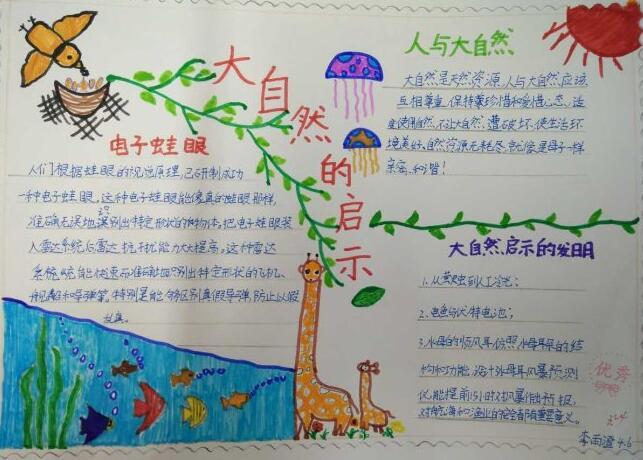 大自然的启示
人与大自然
大自然是天然资源,人与大自然应该
互相尊重,保持着珍惜和爱惜之态,适
度使用自然,不让大自然遭破坏,使生活环
境美好,自然资源无耗尽,就像是母子一样
亲密、和谐!
电子蛙眼
人们根据蛙眼的视觉原理,已研制成功
一种电子蛙眼。这种电子蛙眼能像真的蛙眼那样,
准确无误地识别出特定形状的物体。把电子蛙眼装
入雷达系统后,雷达抗干扰能力大大提高。这种雷达
系统能快速而准确地识别出特定形状的飞机、
舰船和导弹等。特别是能够区别真假导弹,防止以假
乱真。
大自然启示的发明
1.从萤火虫到人工冷光;
2.电鱼与伏特电池;
3.水母的顺风耳,仿照水母耳朵的结
构和功能,设计水母耳风暴预测
仪,能提前15小时对风暴作预报,
对航海和渔业的安全都有重要意义。
优秀
李雨澄 4.6